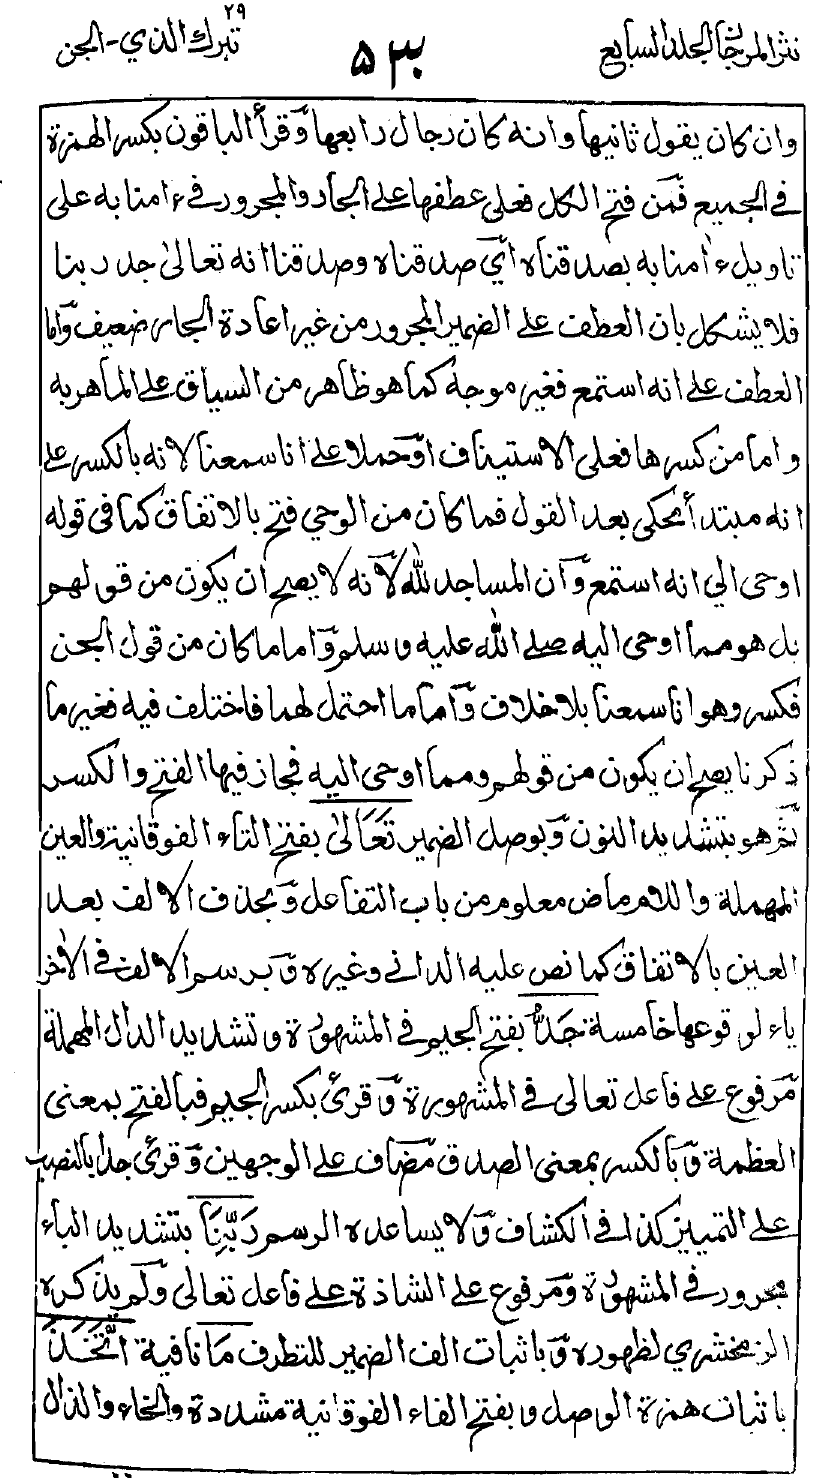 نثر المرجان المجلد السابع
٥٣٠
تبرك الذي - الجن ٢٩
وان كان يقول ثانيها وانه كان رجال رابعها وقرأ الباقون بكسر الهمزة
في الجميع فمن فتح الكل فعلى عطفها على الجار والمجرور في ءامنا به على
تاويل ءامنا به بصدقناه اي صدقناه وصدقنا انه تعالى جد ربنا
فلا يشكل بان العطف على الضمير المجرور من غير اعادة الجار ضعيف واما
العطف على انه استمع فغير موجه كما هو ظاهر من السياق على الماهر به
واما من كسرها فعلى الاستيناف او حملا على انا سمعنا لانه بالكسر على
انه مبتدأ محكي بعد القول فما كان من الوحي فتح بالاتفاق كما في قوله
اوحى الي انه استمع وان المساجد لله لانه لا يصح ان يكون من قولهم
بل هو مما اوحى اليه صلى الله عليه وسلم واما ما كان من قول الجن
فكسر وهو انا سمعنا بلا خلاف واما ما احتمل لهما فاختلف فيه فغير ما
ذكرنا يصح ان يكون من قولهم ومما اوحى اليه فجاز فيها الفتح والكسر
ثم هو بتشديد النون وبوصل الضمير تَعَالىٰ بفتح التاء الفوقانية والعين
المهملة واللام ماض معلوم من باب التفاعل وبحذف الالف بعد
العين بالاتفاق كما نص عليه الداني وغيره وبرسم الالف في الاخر
ياء لوقوعها خامسة جَدُّ بفتح الجيم في المشهورة وتشديد الدال المهملة
مرفوع على فاعل تعالى في المشهورة وقرئ بكسر الجيم فبالفتح بمعنى
العظمة وبالكسر بمعنى الصدق مضاف على الوجهين وقرئ جدا بالنصب
على التمييز كذا في الكشاف ولا يساعده الرسم رَبِّنَا بتشديد الباء
مجرور في المشهورة ومرفوع على الشاذة على فاعل تعالى ولم يذكره
الزمخشري لظهوره وباثبات الف الضمير للتطرف مَا نافية اتَّخَذَ
باثبات همزة الوصل وبفتح الفاء الفوقانية مشددة والخاء والذال